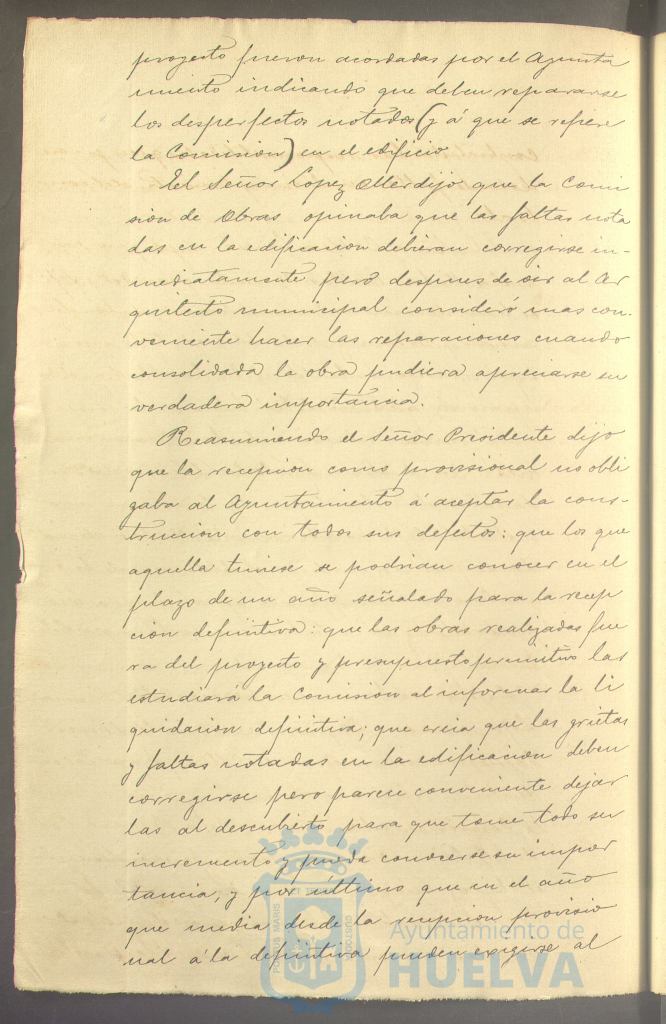 proyecto fueron acordadas por el Ayunta
miento indicando que deben repararse
los desperfectos notados (y á que se refiere
la Comision) en el edificio
El Señor Lopez Oller dijo que la Comi
sion de Obras opinaba que las faltas nota
das en la edificacion debieran corregirse in-
mediatamente pero despues de oir al Ar
quitecto municipal consideró mas con-
veniente hacer las reparaciones cuando
consolidada la obra pudiera apreciarse su
verdadera importancia.
Reasumiendo el Señor Presidente dijo
que la recepcion como provisional no obli
gaba al Ayuntamiento á aceptar la cons-
truccion con todos sus defectos: que los que
aquella tuviese se podrian conocer en el
plazo de un año señalado para la recep
cion definitiva: que las obras realizadas fue
ra del proyecto y presupuesto primitivo las
estudiará la Comision al informar la li
quidacion definitiva; que creia que las grietas
y faltas notadas en la edificacion deben
corregirse pero parece conveniente dejar
las al descubierto para que tome todo su
incremento y pueda conocerse su impor
tancia, y por último que en el año
que media desde la recepcion provisio
nal á la definitiva pueden exigirse al
PORTUS MARIS
CUSTODIA
Ayuntamiento de
HUELVA